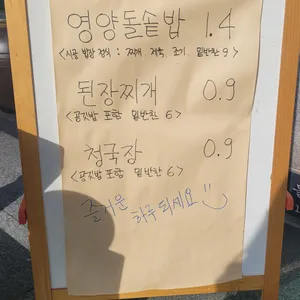 영양돌솥밥 1.4
<시골 밥상 정식 : 찌개. 제육. 조기. 밑반찬 9>
된장찌개 0.9
<공깃밥 포함 밑반찬 6>
청국장 0.9
<공깃밥 포함 밑반찬 6>
즐거운
하루 되세요